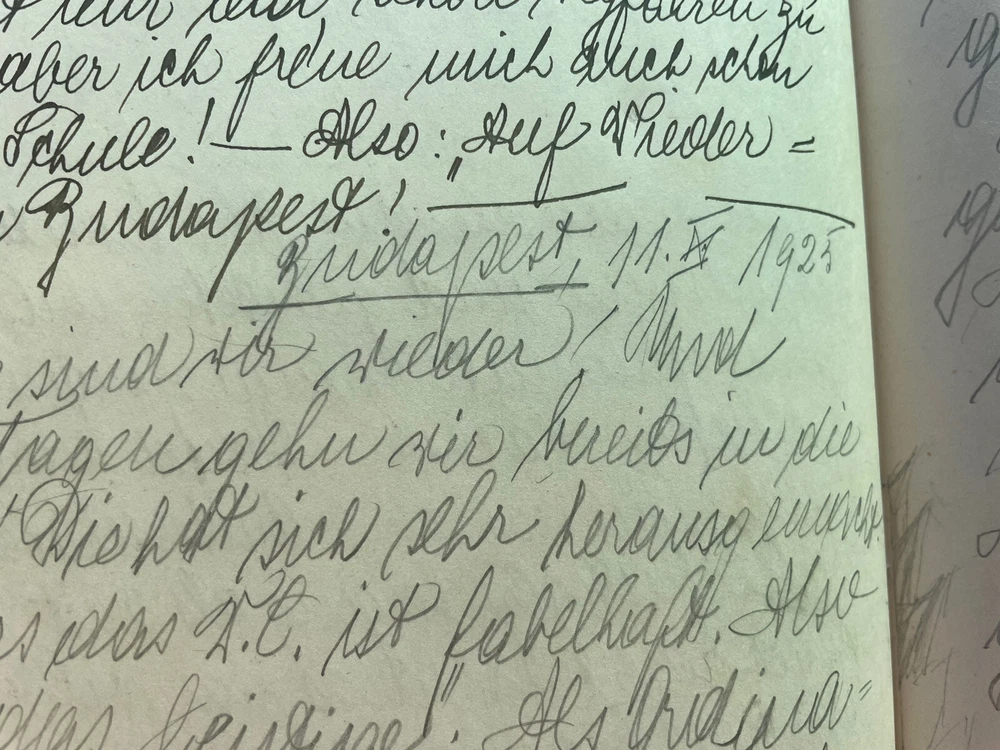 aber ich freue mich auch schon
Schule! — Also: „Auf Wieder=
Budapest!
Budapest, 11. IX 1925
sind wir wieder! Und
Tagen gehn wir bereits in die
Die hat sich sehr herausgemacht.
das W.C. ist fabelhaft. Also
das Geistige". Als Ordina=